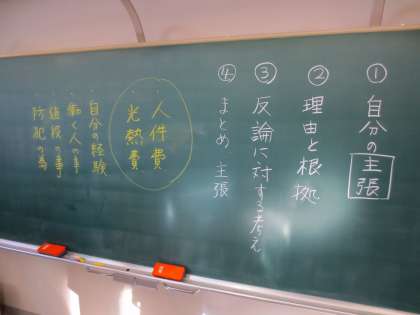 ① 自分の主張
② 理由と根拠
③ 反論に対する考え
④ まとめ 主張
・人件費
・光熱費
・自分の経験
・働く人の事
・値段の事
・防犯の為